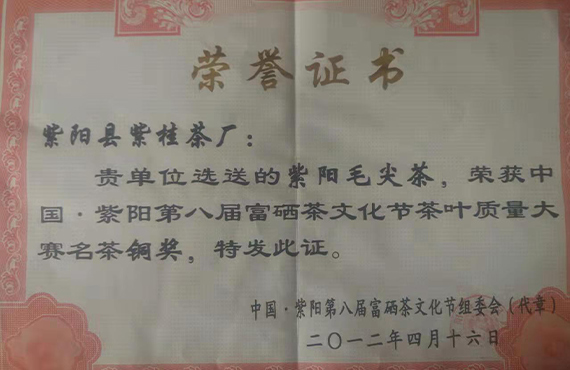 荣誉证书
紫阳县紫桂茶厂：
贵单位选送的紫阳毛尖茶，荣获中
国·紫阳第八届富硒茶文化节茶叶质量大
赛名茶铜奖，特发此证。
中国·紫阳第八届富硒茶文化节组委会（代章）
二〇一二年四月十六日